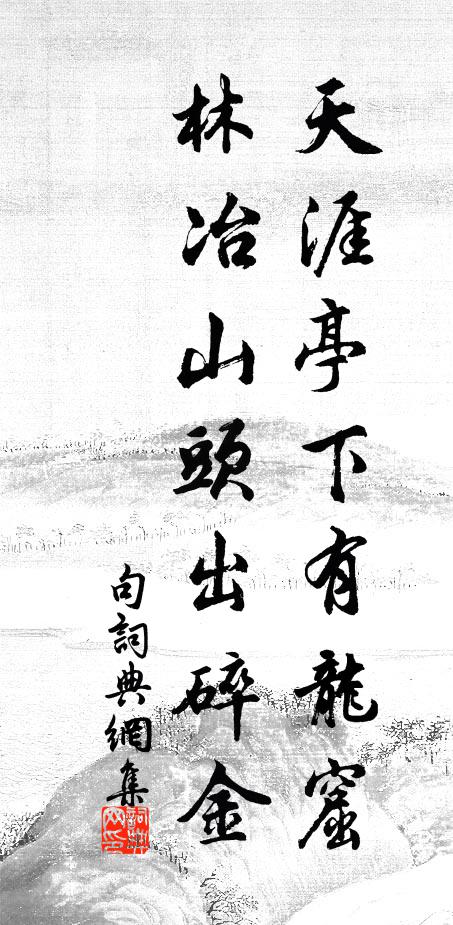 天涯亭下有龍窟
林冶山頭出碎金
句詞典網集